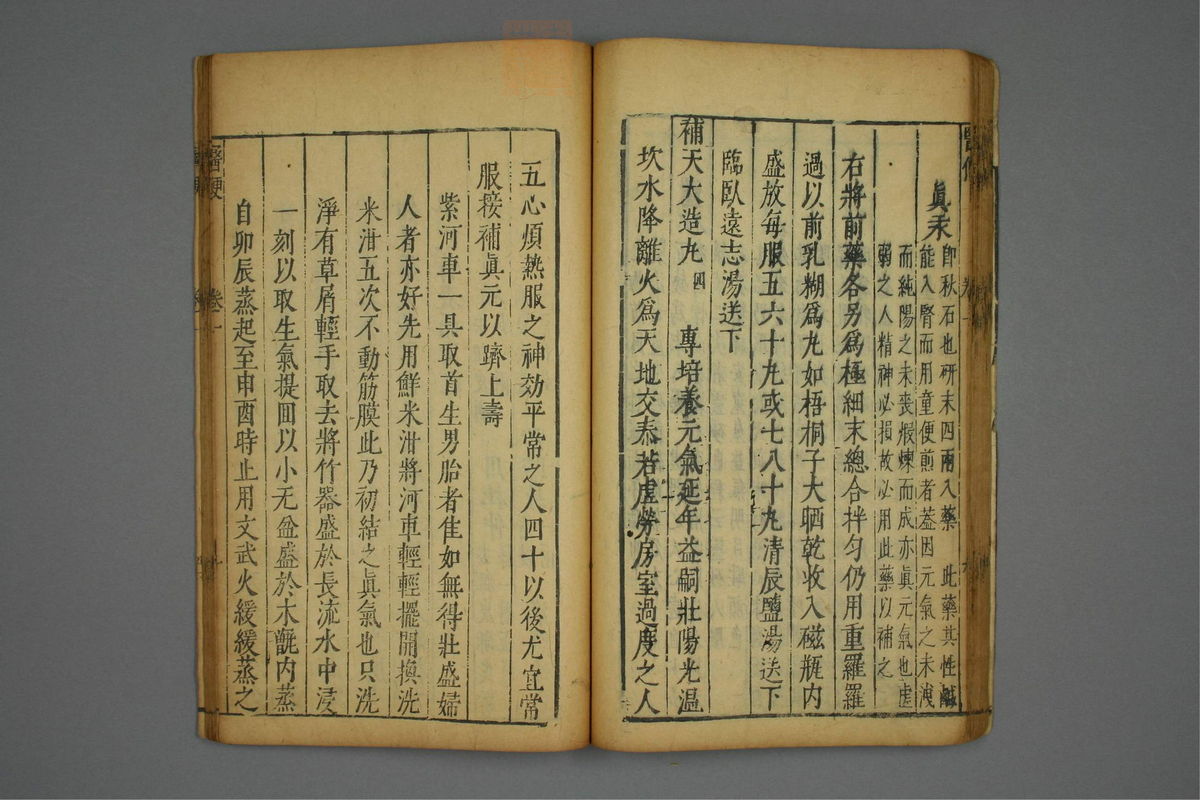 眞汞即秋石也研末四兩入藥 此藥其性鹹
能入腎而用童便煎者葢因元氣之未洩
而純陽之未喪煆煉而成亦眞元氣也虛
弱之人精神必損故必用此藥以補之
右將前藥各另爲極細末總合拌匀仍用重羅羅
過以前乳糊爲丸如梧桐子大晒乾收入磁瓶内
盛放每服五六十丸或七八十丸清辰鹽湯送下
臨臥遠志湯送下
補天大造丸 四 專培養元氣延年益嗣壯陽光溫
坎水降離火爲天地交泰若虛勞房室過度之人
五心煩熱服之神効平常之人四十以後尤宜常
服接補眞元以躋上壽
紫河車一具取首生男胎者隹如無得壯盛婦
人者亦好先用鮮米泔將河車輕輕擺開換洗
米泔五次不動筋膜此乃初結之眞氣也只洗
淨有草屑輕手取去將竹器盛於長流水中浸
一刻以取生氣提囬以小瓦盆盛於木甑内蒸
自卯辰蒸起至申酉時止用文武火緩緩蒸之
醫便
卷一